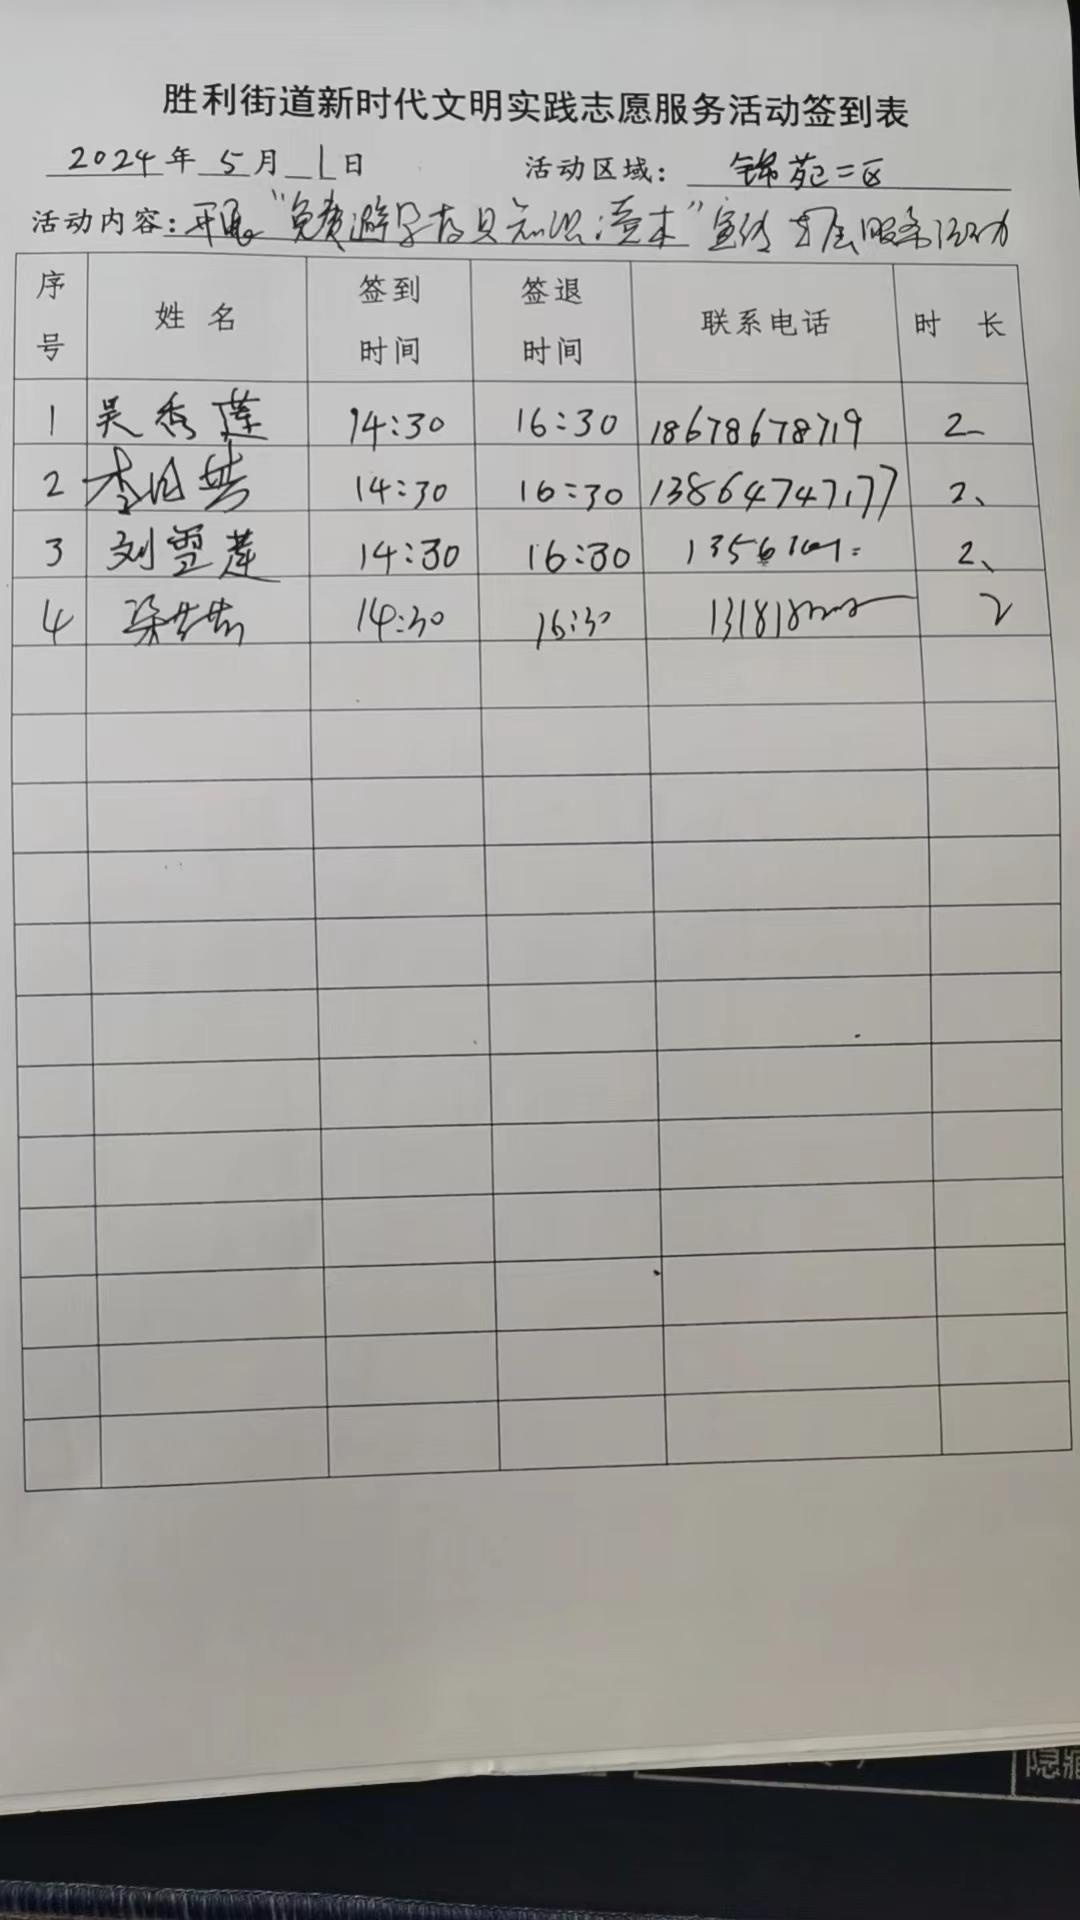 胜利街道新时代文明实践志愿服务活动签到表
2024年5月1日 活动区域：锦苑二区
活动内容：开展“免费避孕药具知识读本”宣传 服务活动
序号 姓名 签到时间 签退时间 联系电话 时长
1 吴秀莲 14:30 16:30 18678678719 2
2 李 14:30 16:30 13864747177 2、
3 刘雪莲 14:30 16:30 2、
4 梁 14:30 16:30 2
隐藏